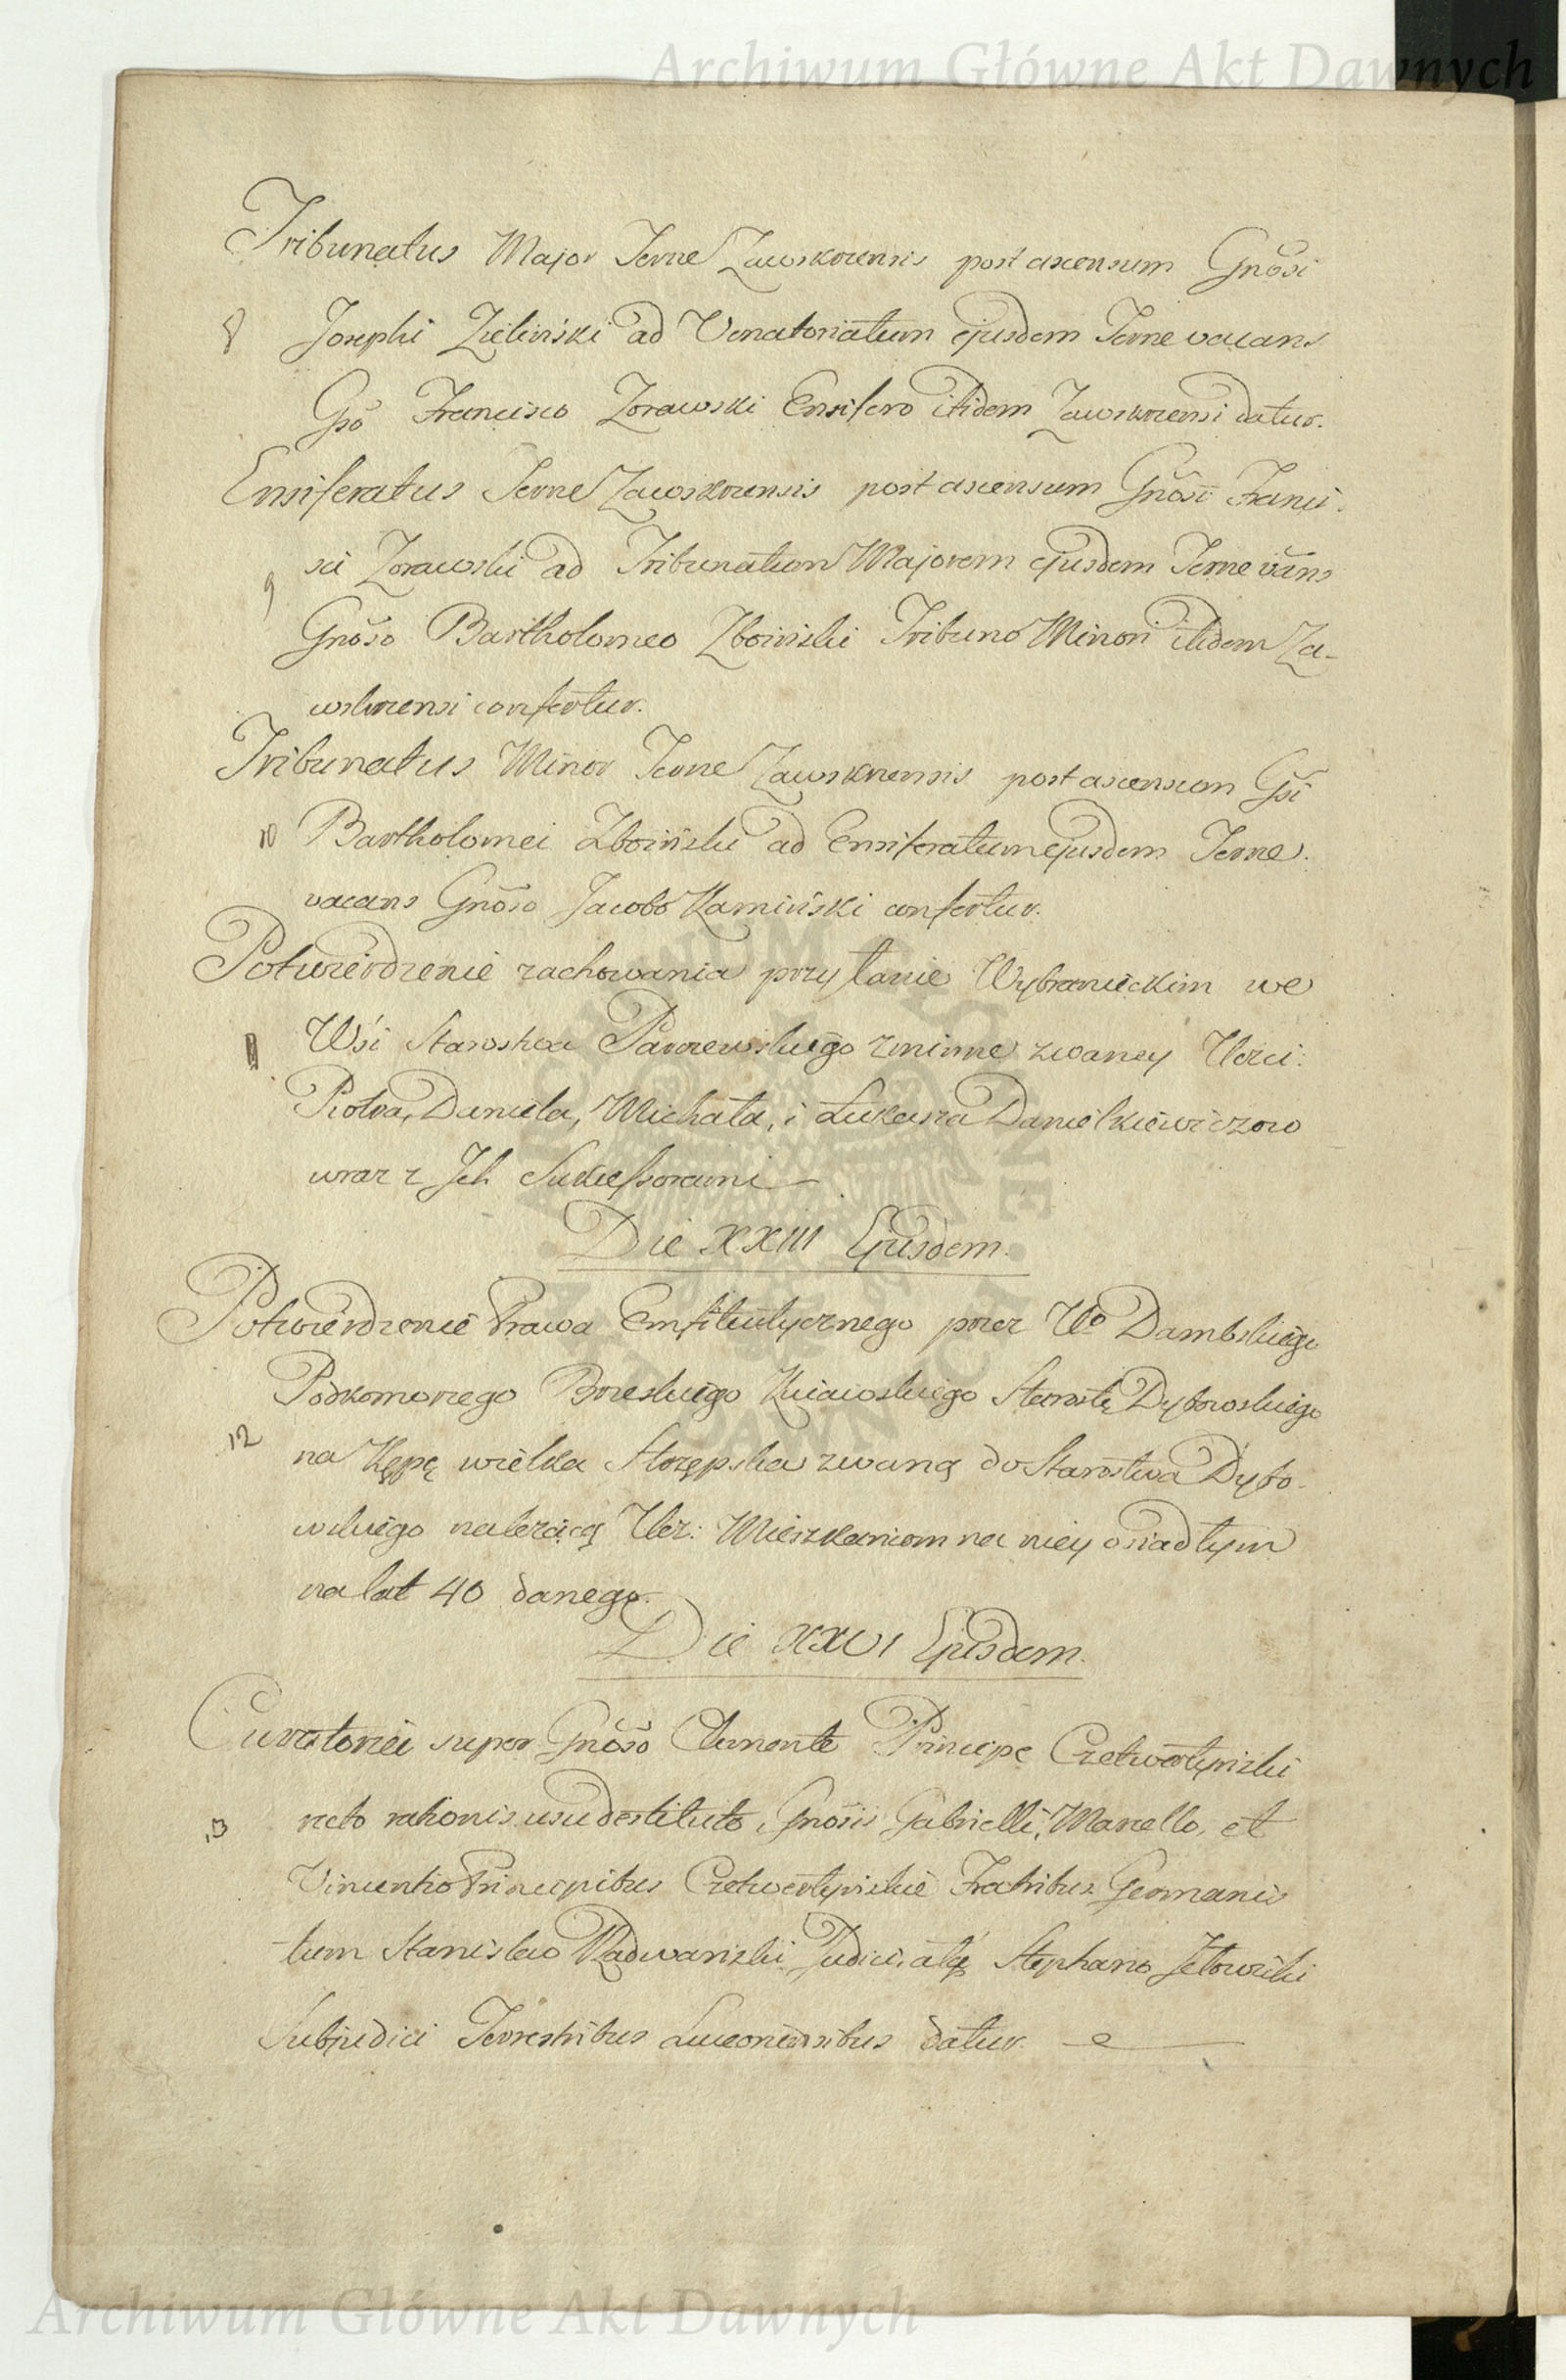 Archiwum Główne Akt Dawnych
Tribunatus Major Terræ Zawskrzensis post ascensum Gnõsi
8 Josephi Zieliński ad Venatoriatum ejusdem Terræ vacans
Gsõ Francisco Zorawski Ensifero itidem Zawskrzensi datur.
Ensiferatus Terræ Zawskrzensis post ascensum Gnõsi Franci-
9 sci Zorawski ad Tribunatum Majorem ejusdem Terræ vãns
Gnõso Bartholomeo Zboiński Tribuno Minori itidem Za-
wskrzensi confertur.
Tribunatus Minor Terræ Zawskrzensis post ascensum Gsĩ
10 Bartholomei Zboiński ad Ensiferatum ejusdem Terræ
vacans Gnõso Jacobo Kamiński confertur.
Potwierdzenie zachowania przy Łanie Wybranieckim we
11 Wsi Starostwa Parczewskiego zwaney Ucci:
Piotra, Daniela, Michała, i Łukasza Danielkiewiczow
wraz z Jch Sukcessorami
Die XXIII Ejusdem.
Potwierdzenie Prawa Emfiteutycznego przez Uo Dambskiego
Podkomorzego Brzeskiego Kuiawskiego Starostę Dybowskiego
12 na Kępę wielka zwaną do Starostwa Dybo-
wskiego należącą Ucz: Mieszkańcom na niey osiadłym
na lat 40 danego.
Die XXVI Ejusdem.
Curatoria super Gnõso Clemente Principe Czetwertyński
13 recto rationis usu destituto, Gnõsis Gabrielli, Marcello, et
Vincentio Principibus Czetwertyńskie Fratribus Germanis
tum Stanislao Radwański Judici, atq Stephano Jełowicki
Subjudici Terrestribus Luceoriensibus datur.
Archiwum Główne Akt Dawnych